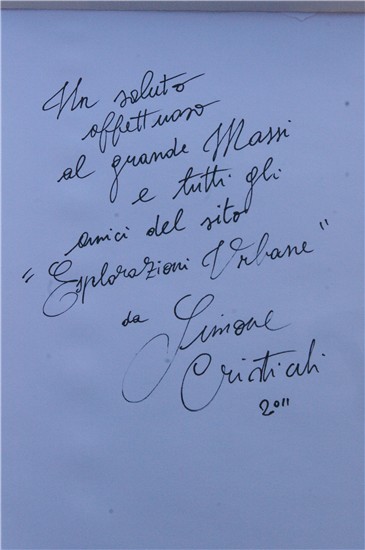 Un saluto
affettuoso
al grande Massi
e tutti gli
amici del sito
"Esplorazioni Urbane"
da Simone
Cristicchi
2011